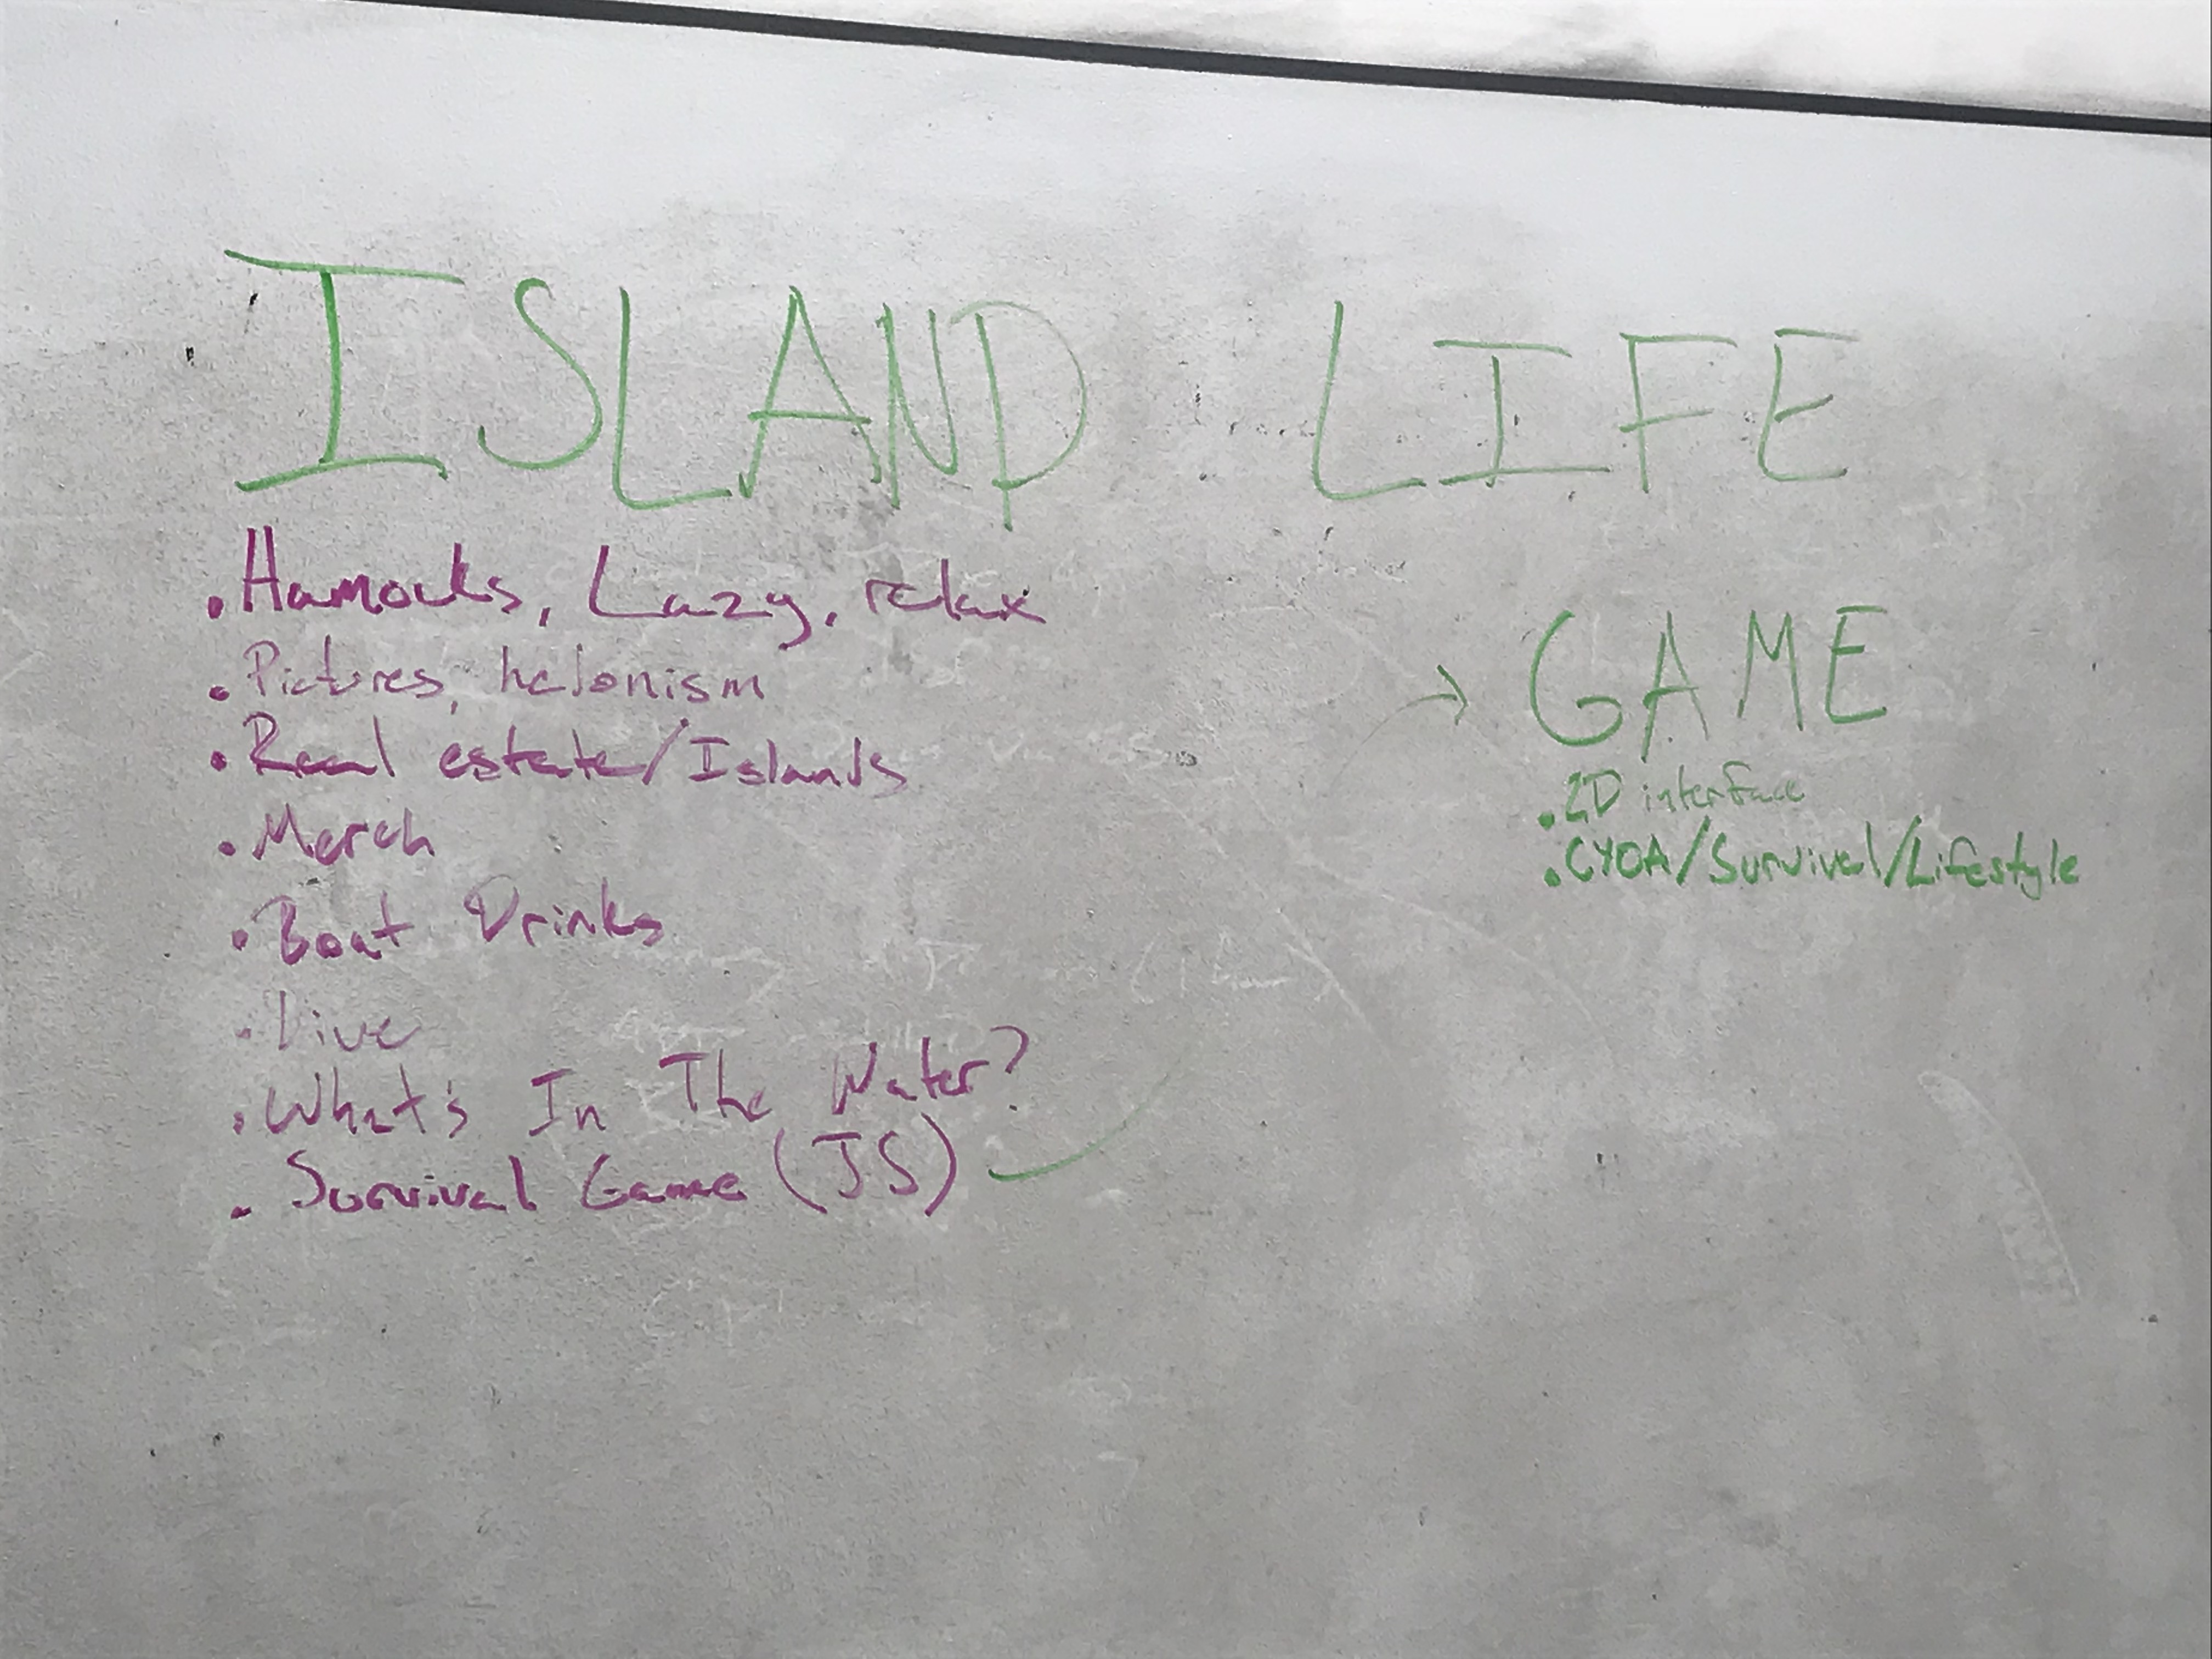 ISLAND LIFE
• Hamocks, Lazy, relax
• Pictures, helonism
• Real estate/Islands
• Merch
• Boat Drinks
• Live
• What's In The Water?
• Survival Game (JS)
→ GAME
• 2D interface
• CYOA/Survival/Lifestyle